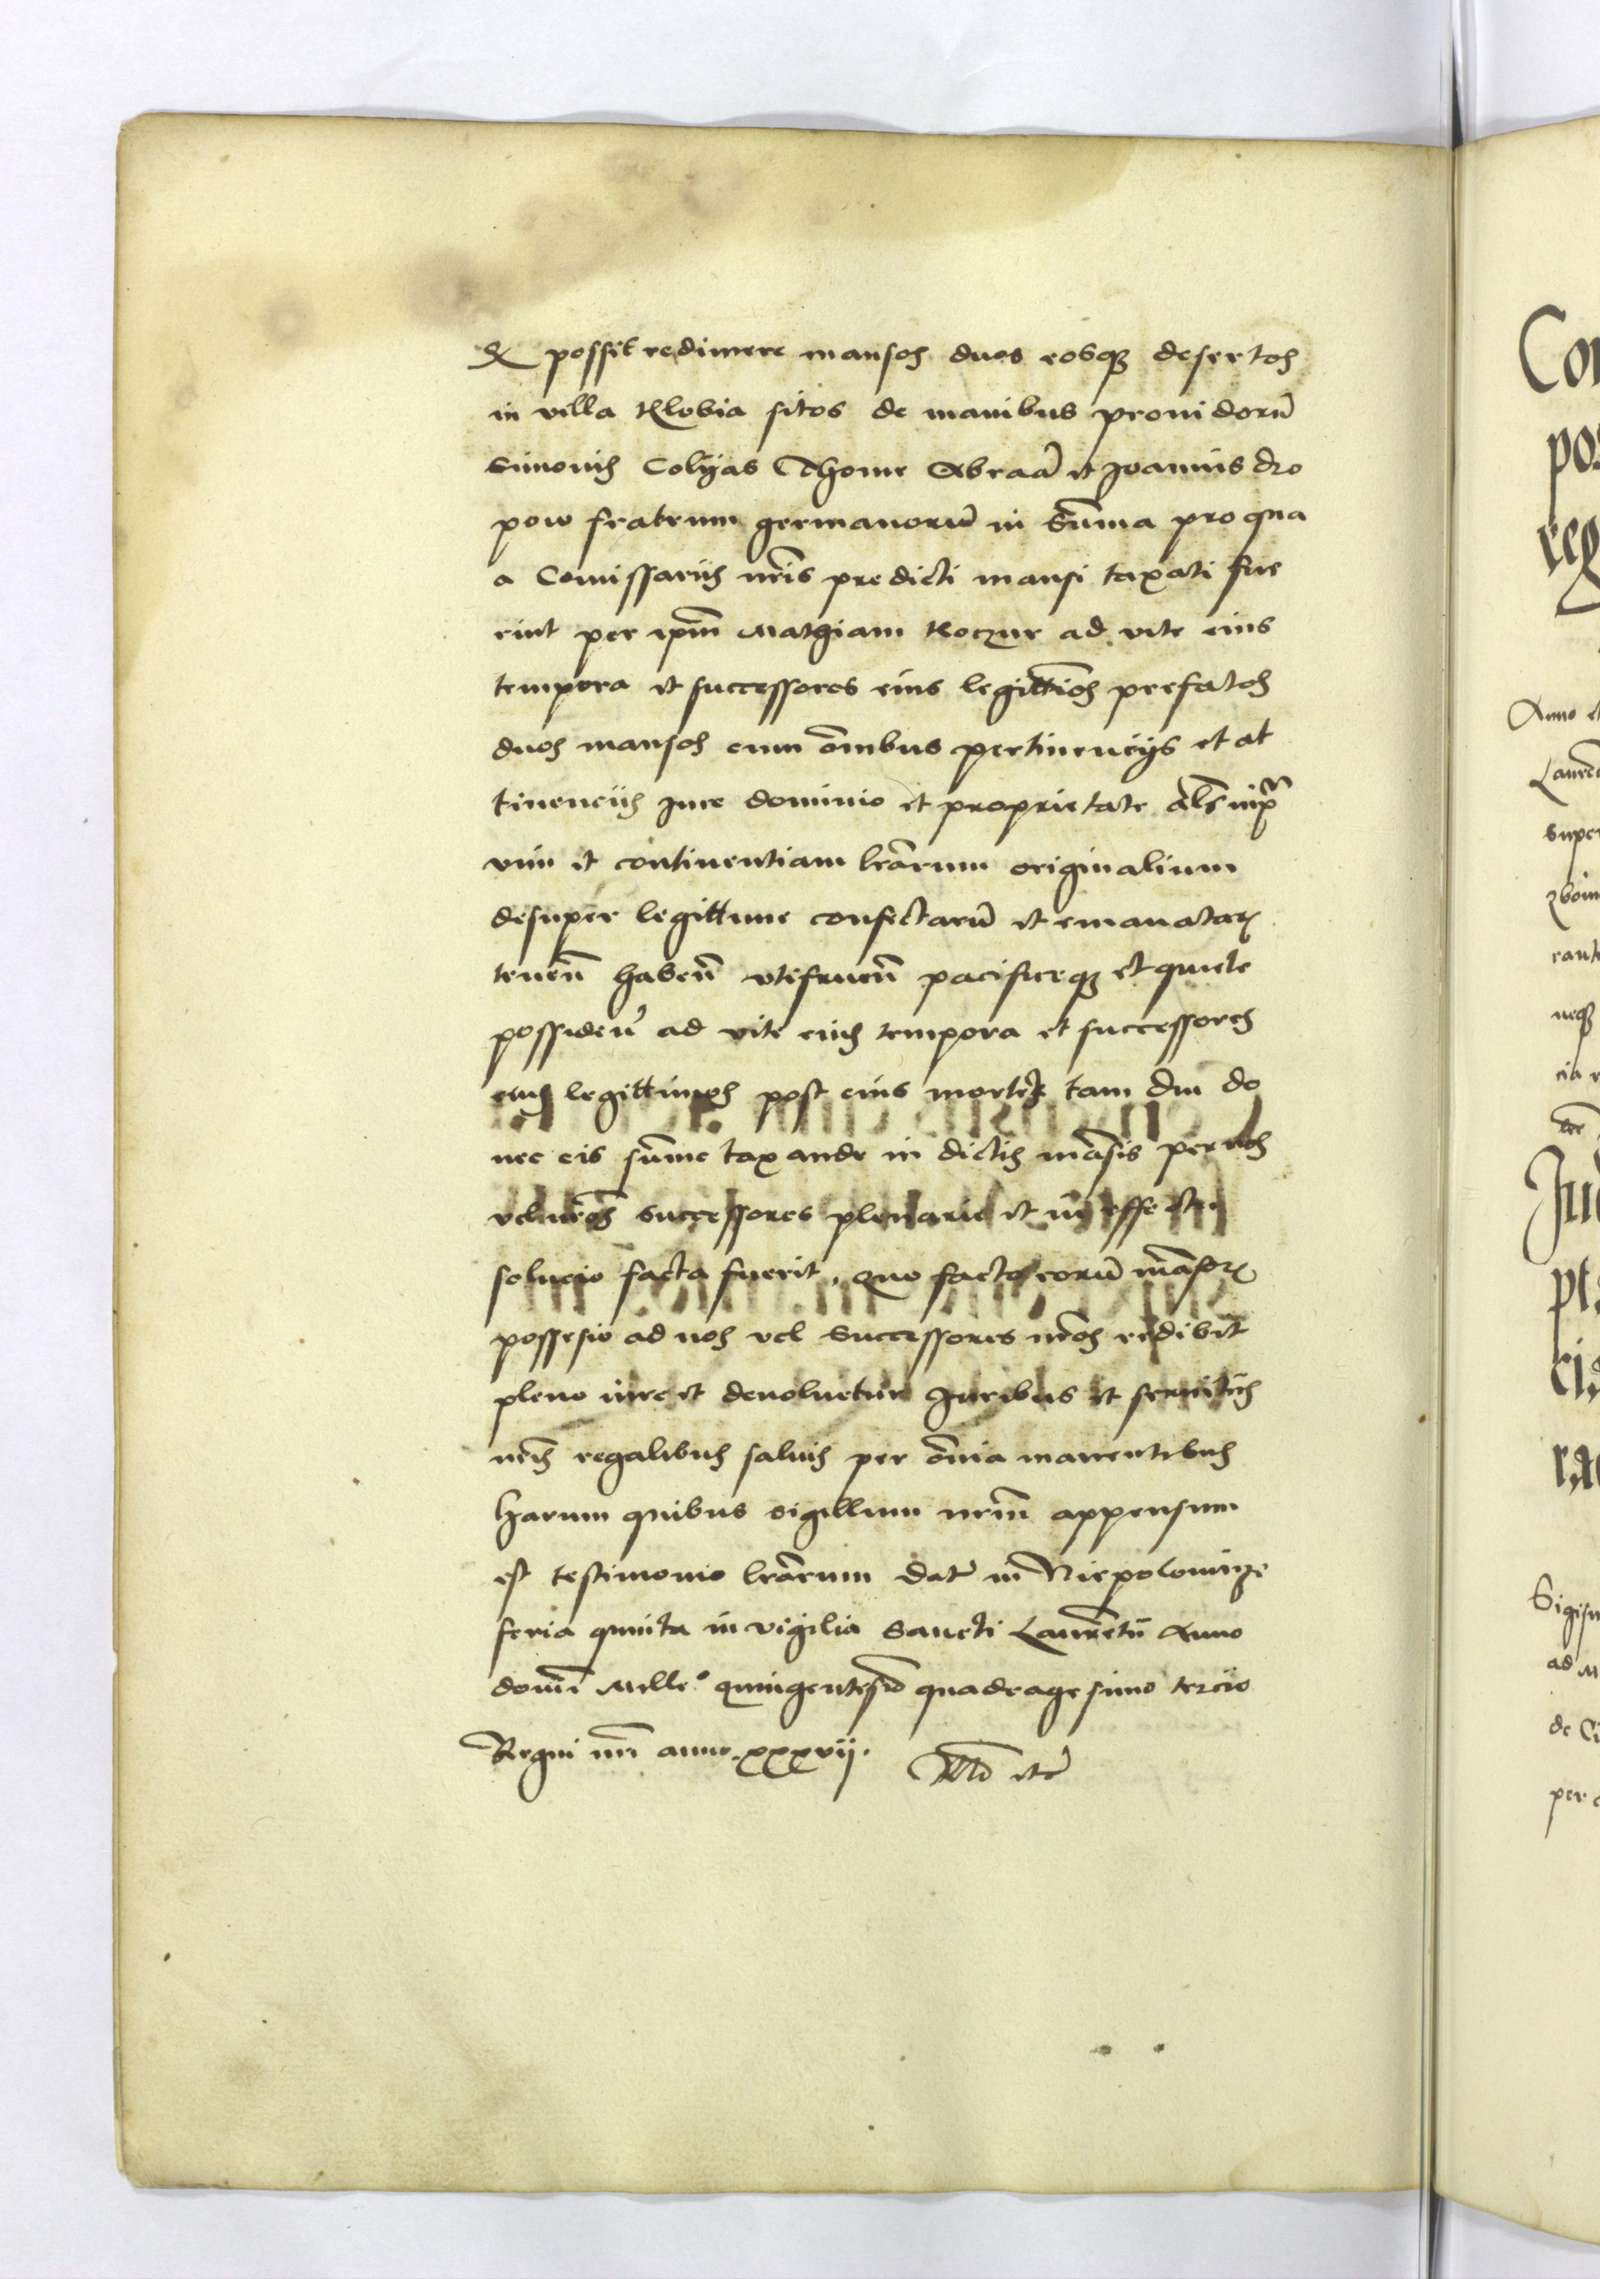 & possit redimere mansos duos eosq desertos
in villa Klobia sitos de manibus prouidorū
Simonis Colyas Thome Abraā et Joannis dro
pow fratrum germanorū in Sūma pro qua
a Comissariis nr̄is predicti mansi taxati fue
rint per ip̄m Mathiam Koczur ad vite eius
tempora et successores eius legittīos prefatos
duos mansos cum ōnibus pertinencijs et at
tinenciis Jure dominio et proprietate al̄s
vim et continentiam lr̄arum originalium
desuper legittime confectarū et emanatarꝫ
tenen̄ haben̄ vtifruen̄ pacificeq et quiete
possiden̄ ad vite eius tempora et successores
eius legittimos post eius mortē tam diu do
nec eis sūme taxande in dictis māsis per nos
vel nr̄os successores plenarie et in effectu
solucio facta fuerit, quo facto eorū māsorꝫ
possesio ad nos vel Successores nr̄os redibit
pleno iure et deuoluetur Juribus et seruitiis
nr̄is regalibus saluis per ōnia manentibus
harum quibus sigillum nr̄m appensum
est testimonio lr̄arum dat̄ in Niepolomijze
feria quinta in vigilia Sancti Laurētii Anno
domī Mille° quingentesīo quadragesimo tercio
Regni nr̄i anno xxxvii.
Cor
pos
reg
Anno et
Laurē
super
zboin
neq
Ju
cis
Sigism
ad M
de Ci
per